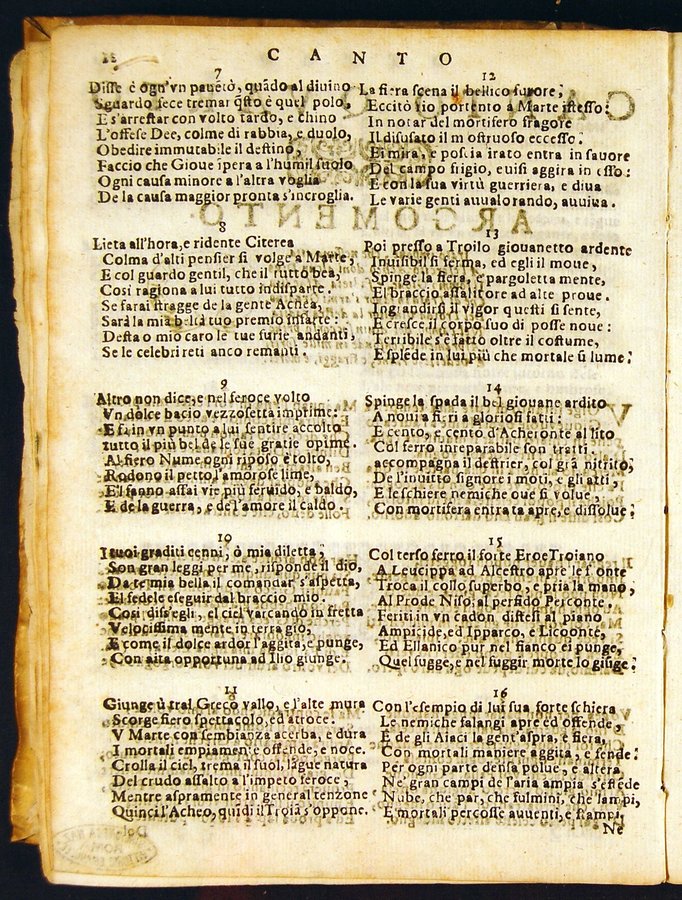 CANTO
7
Disse è ogn'vn pauẽtò, quãdo al diuino
Sguardo fece tremar q̃sto è quel polo,
E s'arrestar con volto tardo, e chino
L'offese Dee, colme di rabbia, e duolo,
Obedire immutabile il destino,
Faccio che Gioue ĩpera a l'humil suolo
Ogni causa minore a l'altra voglia
De la causa maggior pronta s'incroglia.
8
Lieta all'hora, e ridente Citerea
Colma d'alti pensier si volge a Marte,
E col guardo gentil, che il tutto bea,
Cosi ragiona a lui tutto indisparte.
Se farai stragge de la gente Achea,
Sarà la mia beltà tuo premio in parte:
Desta o mio caro le tue furie andanti,
Se le celebri reti anco remanti.
9
Altro non dice, e nel feroce volto
Vn dolce bacio vezzosetta imprime:
E fa in vn punto a lui sentire accolto
tutto il più bel de le sue gratie opime.
Al fiero Nume ogni riposo è tolto,
Rodono il petto l'amorose lime,
E'l fanno assai vie più feruido, e baldo,
E de la guerra, e de l'amore il caldo.
10
I tuoi graditi cenni, ò mia diletta,
Son gran leggi per me, risponde il dio,
Da te mia bella il comandar s'aspetta,
El fedele eseguir dal braccio mio.
Cosi diss'egli, el ciel varcando in fretta
Velocissima mente in terra gio,
E come il dolce ardor l'aggita, e punge,
Con aita opportuna ad Ilio giunge.
11
Giunge ũ tral Greco vallo, e l'alte mura
Scorge fiero spettacolo, ed atroce.
V Marte con sembianza acerba, e dura
I mortali empiamente offende, e noce.
Crolla il ciel, trema il suol, lãgue natura
Del crudo assalto a l'impeto feroce,
Mentre aspramente in general tenzone
Quinci l'Acheo, quidi il Troiã s'oppone.
12
La fiera scena il bellico furore,
Eccitò rio portento a Marte istesso:
In notar del mortifero fragore
Il disusato il mostruoso eccesso.
Ei mira, e poscia irato entra in fauore
Del campo stigio, e uisi aggira in esso:
E con la sua virtù guerriera, e diua
Le varie genti auualorando, auuiua.
13
Poi presso a Troilo giouanetto ardente
Inuisibil si ferma, ed egli il moue,
Spinge la fiera, e pargoletta mente,
El braccio assalitore ad alte proue.
Ingrandirsi il vigor questi si sente,
E cresce il corpo suo di posse noue:
Terribile s'è fatto oltre il costume,
E splẽde in lui più che mortale il lume:
14
Spinge la spada il bel giouane ardito
A noui a fieri a gloriosi fatti:
E cento, e cento d'Acheronte al lito
Col ferro inreparabile son tratti.
accompagna il destrier, col grã nitrito,
De l'inuitto signore i moti, e gli atti,
E le schiere nemiche oue si volue,
Con mortifera entrata apre, e dissolue:
15
Col terso ferro il forte Eroe Troiano
A Leucippa ad Alcestro apre le fronte
Troca il collo superbo, e pria la mano,
Al Prode Niso, al perfido Perconte.
Feriti in vn cadon distesi al piano
Ampicide, ed Ipparco, e Licoonte,
Ed Ellanico pur nel fianco ei punge,
Quel fugge, e nel fuggir morte lo giũge:
16
Con l'esempio di lui sua forte schiera
Le nemiche falangi apre ed offende,
E de gli Aiaci la gent'aspra, e fiera,
Con mortali maniere aggita, e fende:
Per ogni parte densa polue, e altera
Ne' gran campi de l'aria ampia s'estẽde
Nube, che par, che fulmini, che lampi,
E mortali percosse auuenti, e stampi,
Ne